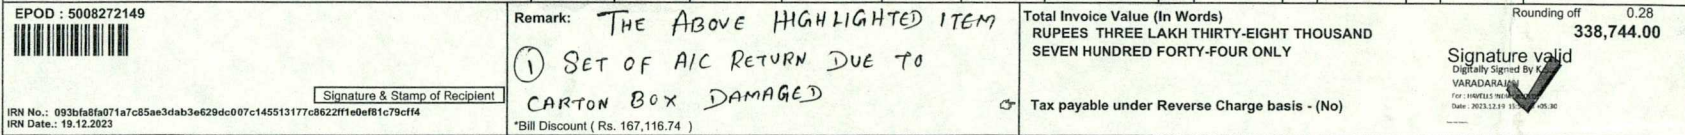 EPOD : 5008272149
Signature & Stamp of Recipient
IRN No.: 093bfa8fa071a7c85ae3dab3e629dc007c145513177c8622ff1e0ef81c79cff4
IRN Date.: 19.12.2023
Remark: THE ABOVE HIGHLIGHTED ITEM
① SET OF A/C RETURN DUE TO
CARTON BOX DAMAGED
*Bill Discount ( Rs. 167,116.74 )
Total Invoice Value (In Words)
RUPEES THREE LAKH THIRTY-EIGHT THOUSAND
SEVEN HUNDRED FORTY-FOUR ONLY
Tax payable under Reverse Charge basis - (No)
Rounding off 0.28
338,744.00
Signature valid
Digitally Signed By
VARADARAJAN
For : HAVELLS
Date : 2023.12.19 +05:30